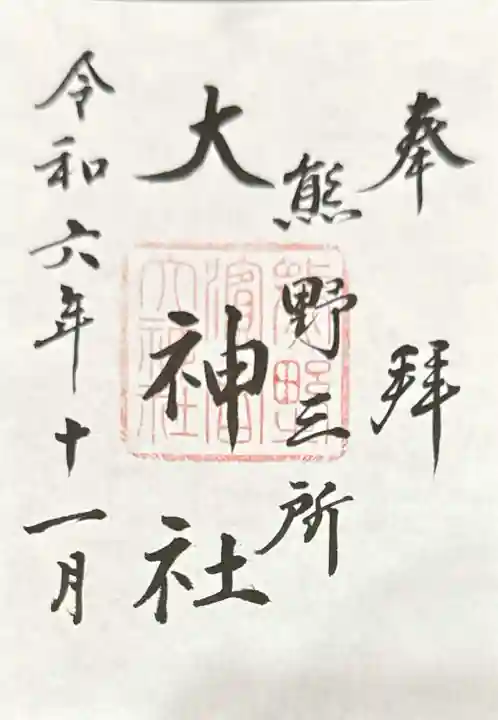 奉拜
熊野三所
大神社
令和六年十一月
熊野
濱宮
大神社